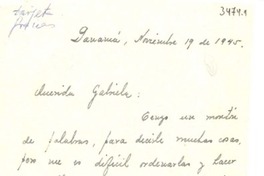 tarjeta
gracias
3474.1
Panamá, Noviembre 19 de 1945.
Querida Gabriela:
Tengo un montón
de palabras, para decirle muchas cosas,
pero me es difícil ordenarlas y hacer